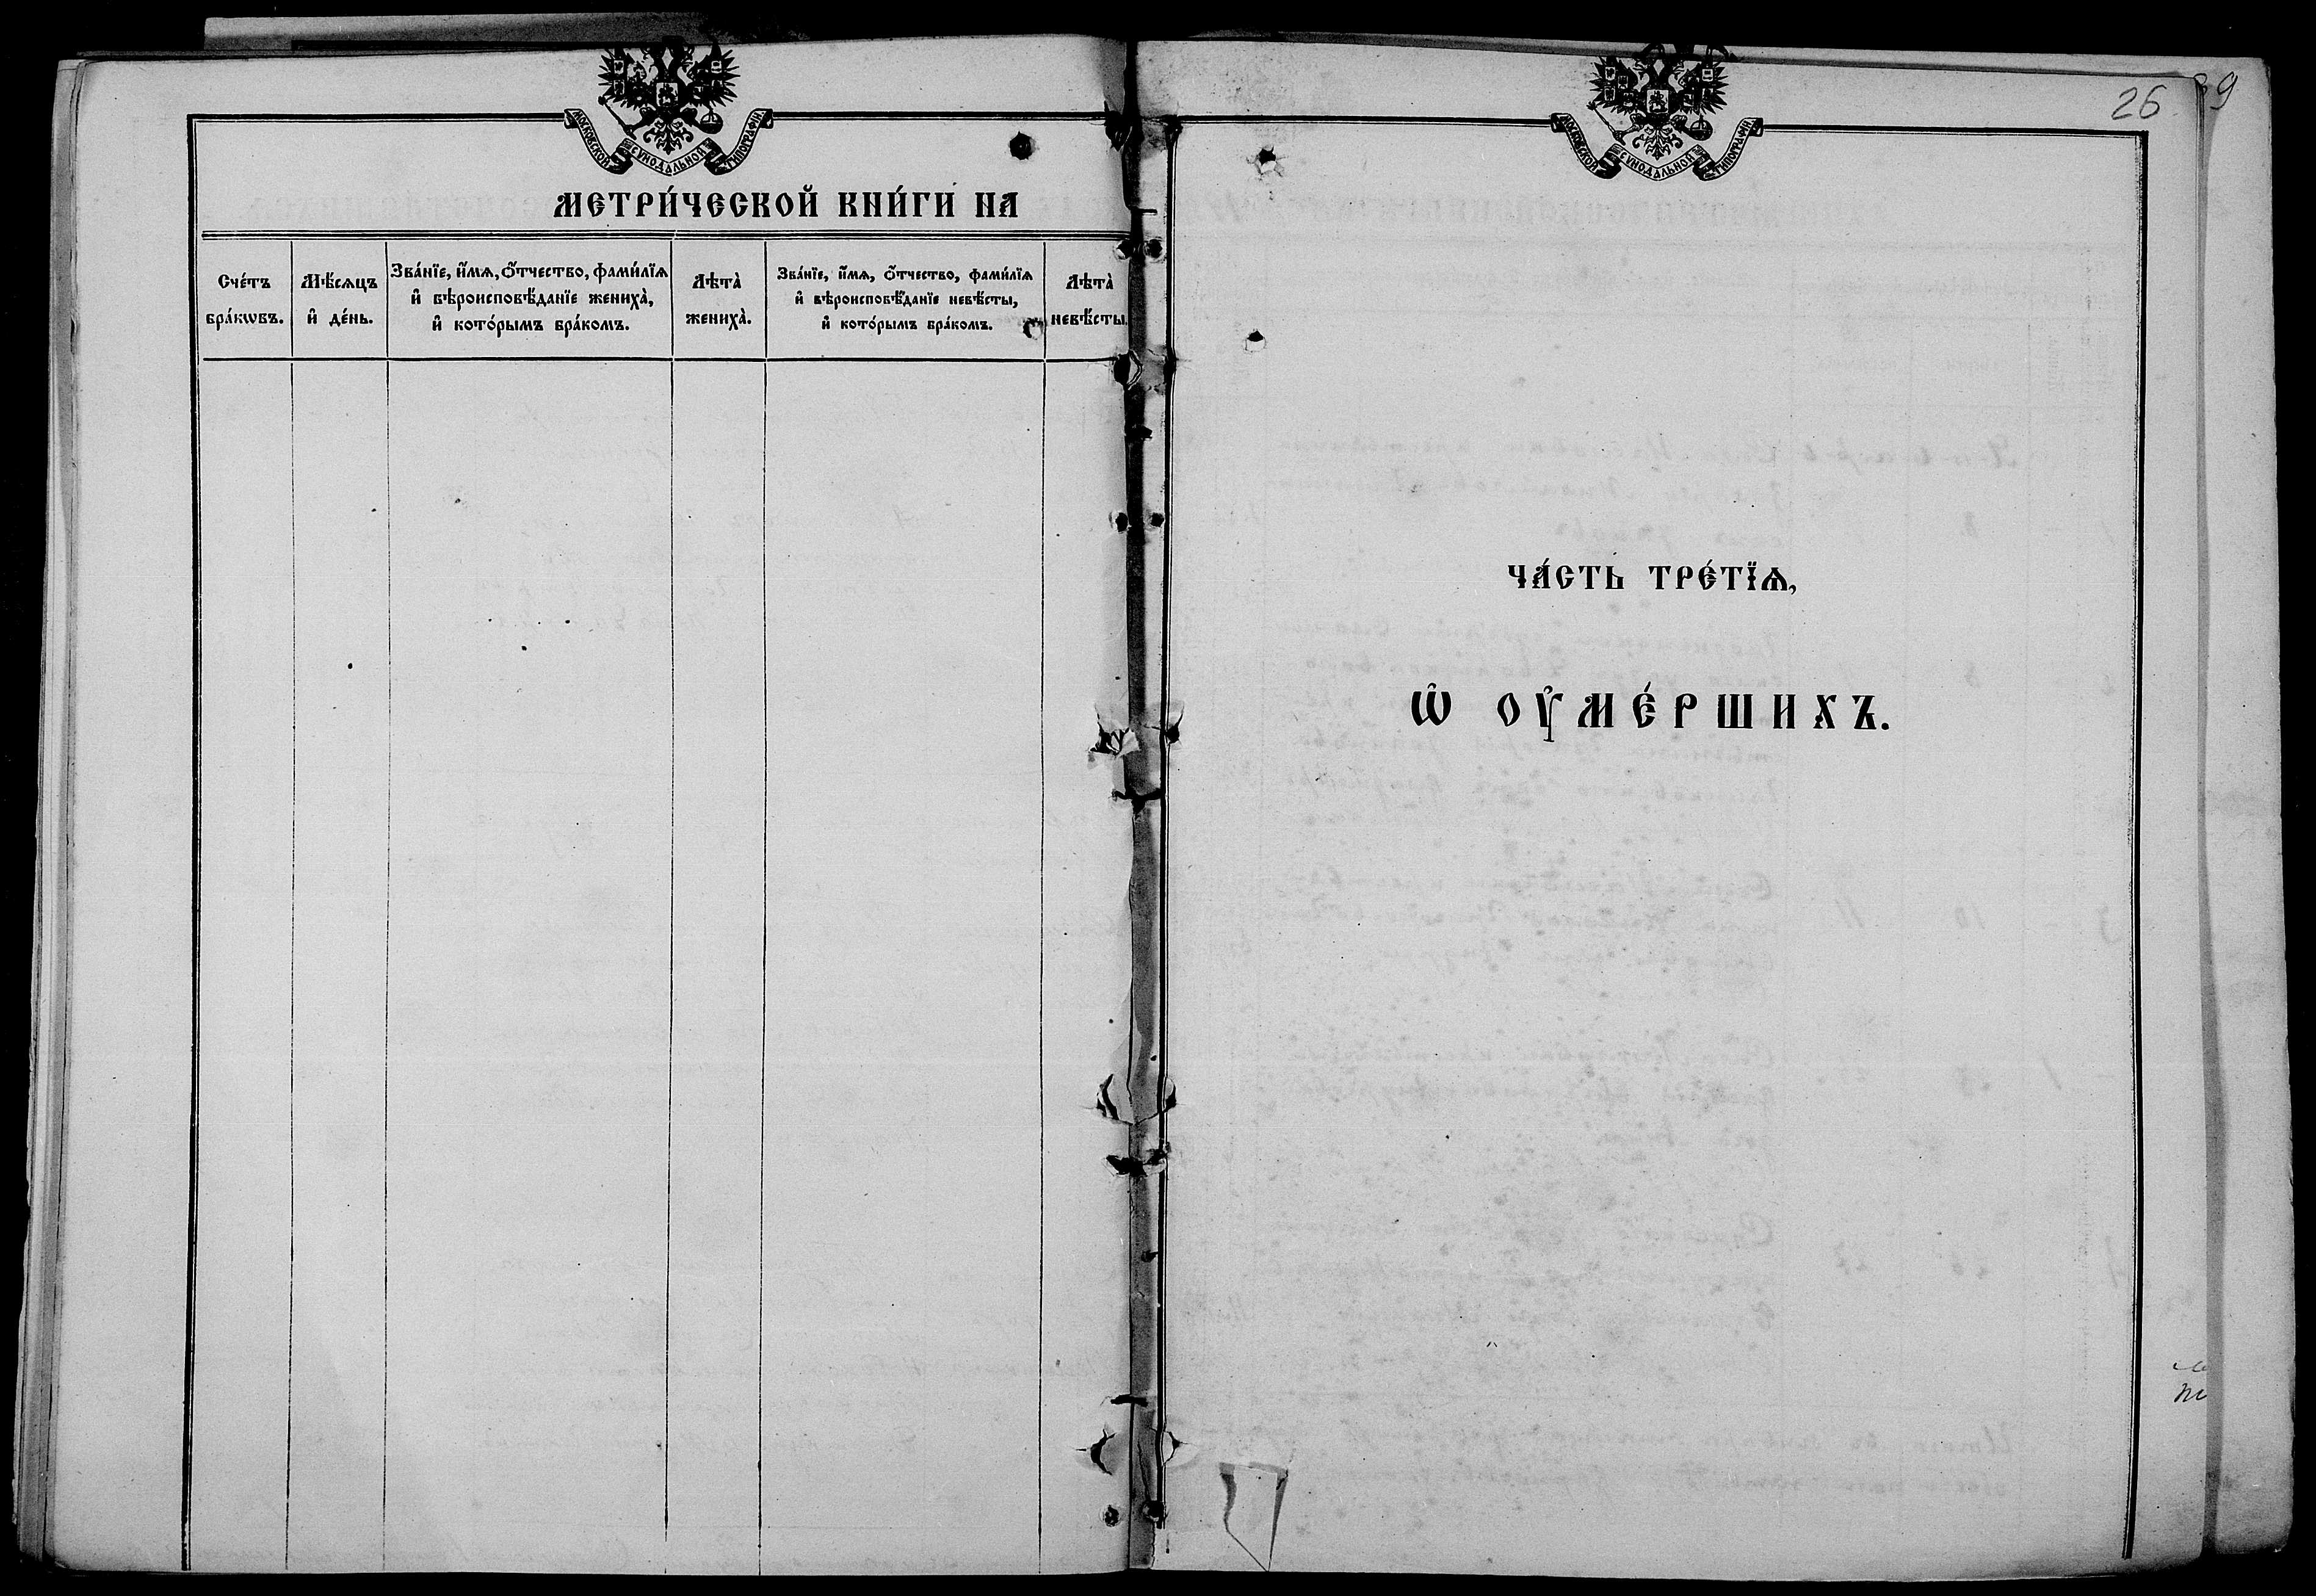 МОСКОВСКОЙ СѴНОДАЛЬНОЙ ТИПОГРАФІИ
МЕТРИ́ЧЕСКОЙ КНИ́ГИ НА
Сче́тъ
бра́кѡвъ.
Мѣ́сѧцъ
и҆ де́нь.
Зва́нїе, и҆́мѧ, ѻ҆́тчество, фами́лїѧ
и҆ вѣроисповѣ́данїе жениха̀,
и҆ кото́рымъ бра́комъ.
Лѣта̀
жениха̀.
Зва́нїе, и҆́мѧ, ѻ҆́тчество, фами́лїѧ
и҆ вѣроисповѣ́данїе невѣ́сты,
и҆ кото́рымъ бра́комъ.
Лѣта̀
невѣ́сты.
МОСКОВСКОЙ СѴНОДАЛЬНОЙ ТИПОГРАФІИ
26.
9
ЧА́СТЬ ТРЕ́ТЇѦ,
Ѡ҆ ОУ҆МЕ́РШИХЪ.